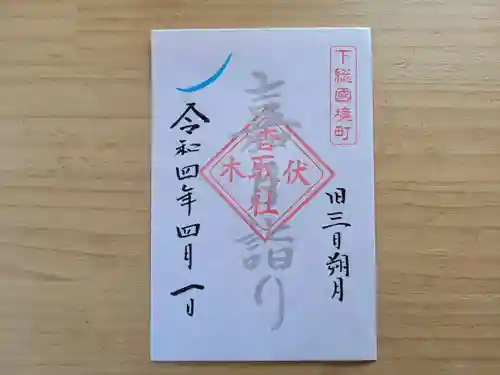 下総國境町
旧三日朔月
嘉月詣り
伏木
香取社
令和四年四月一日